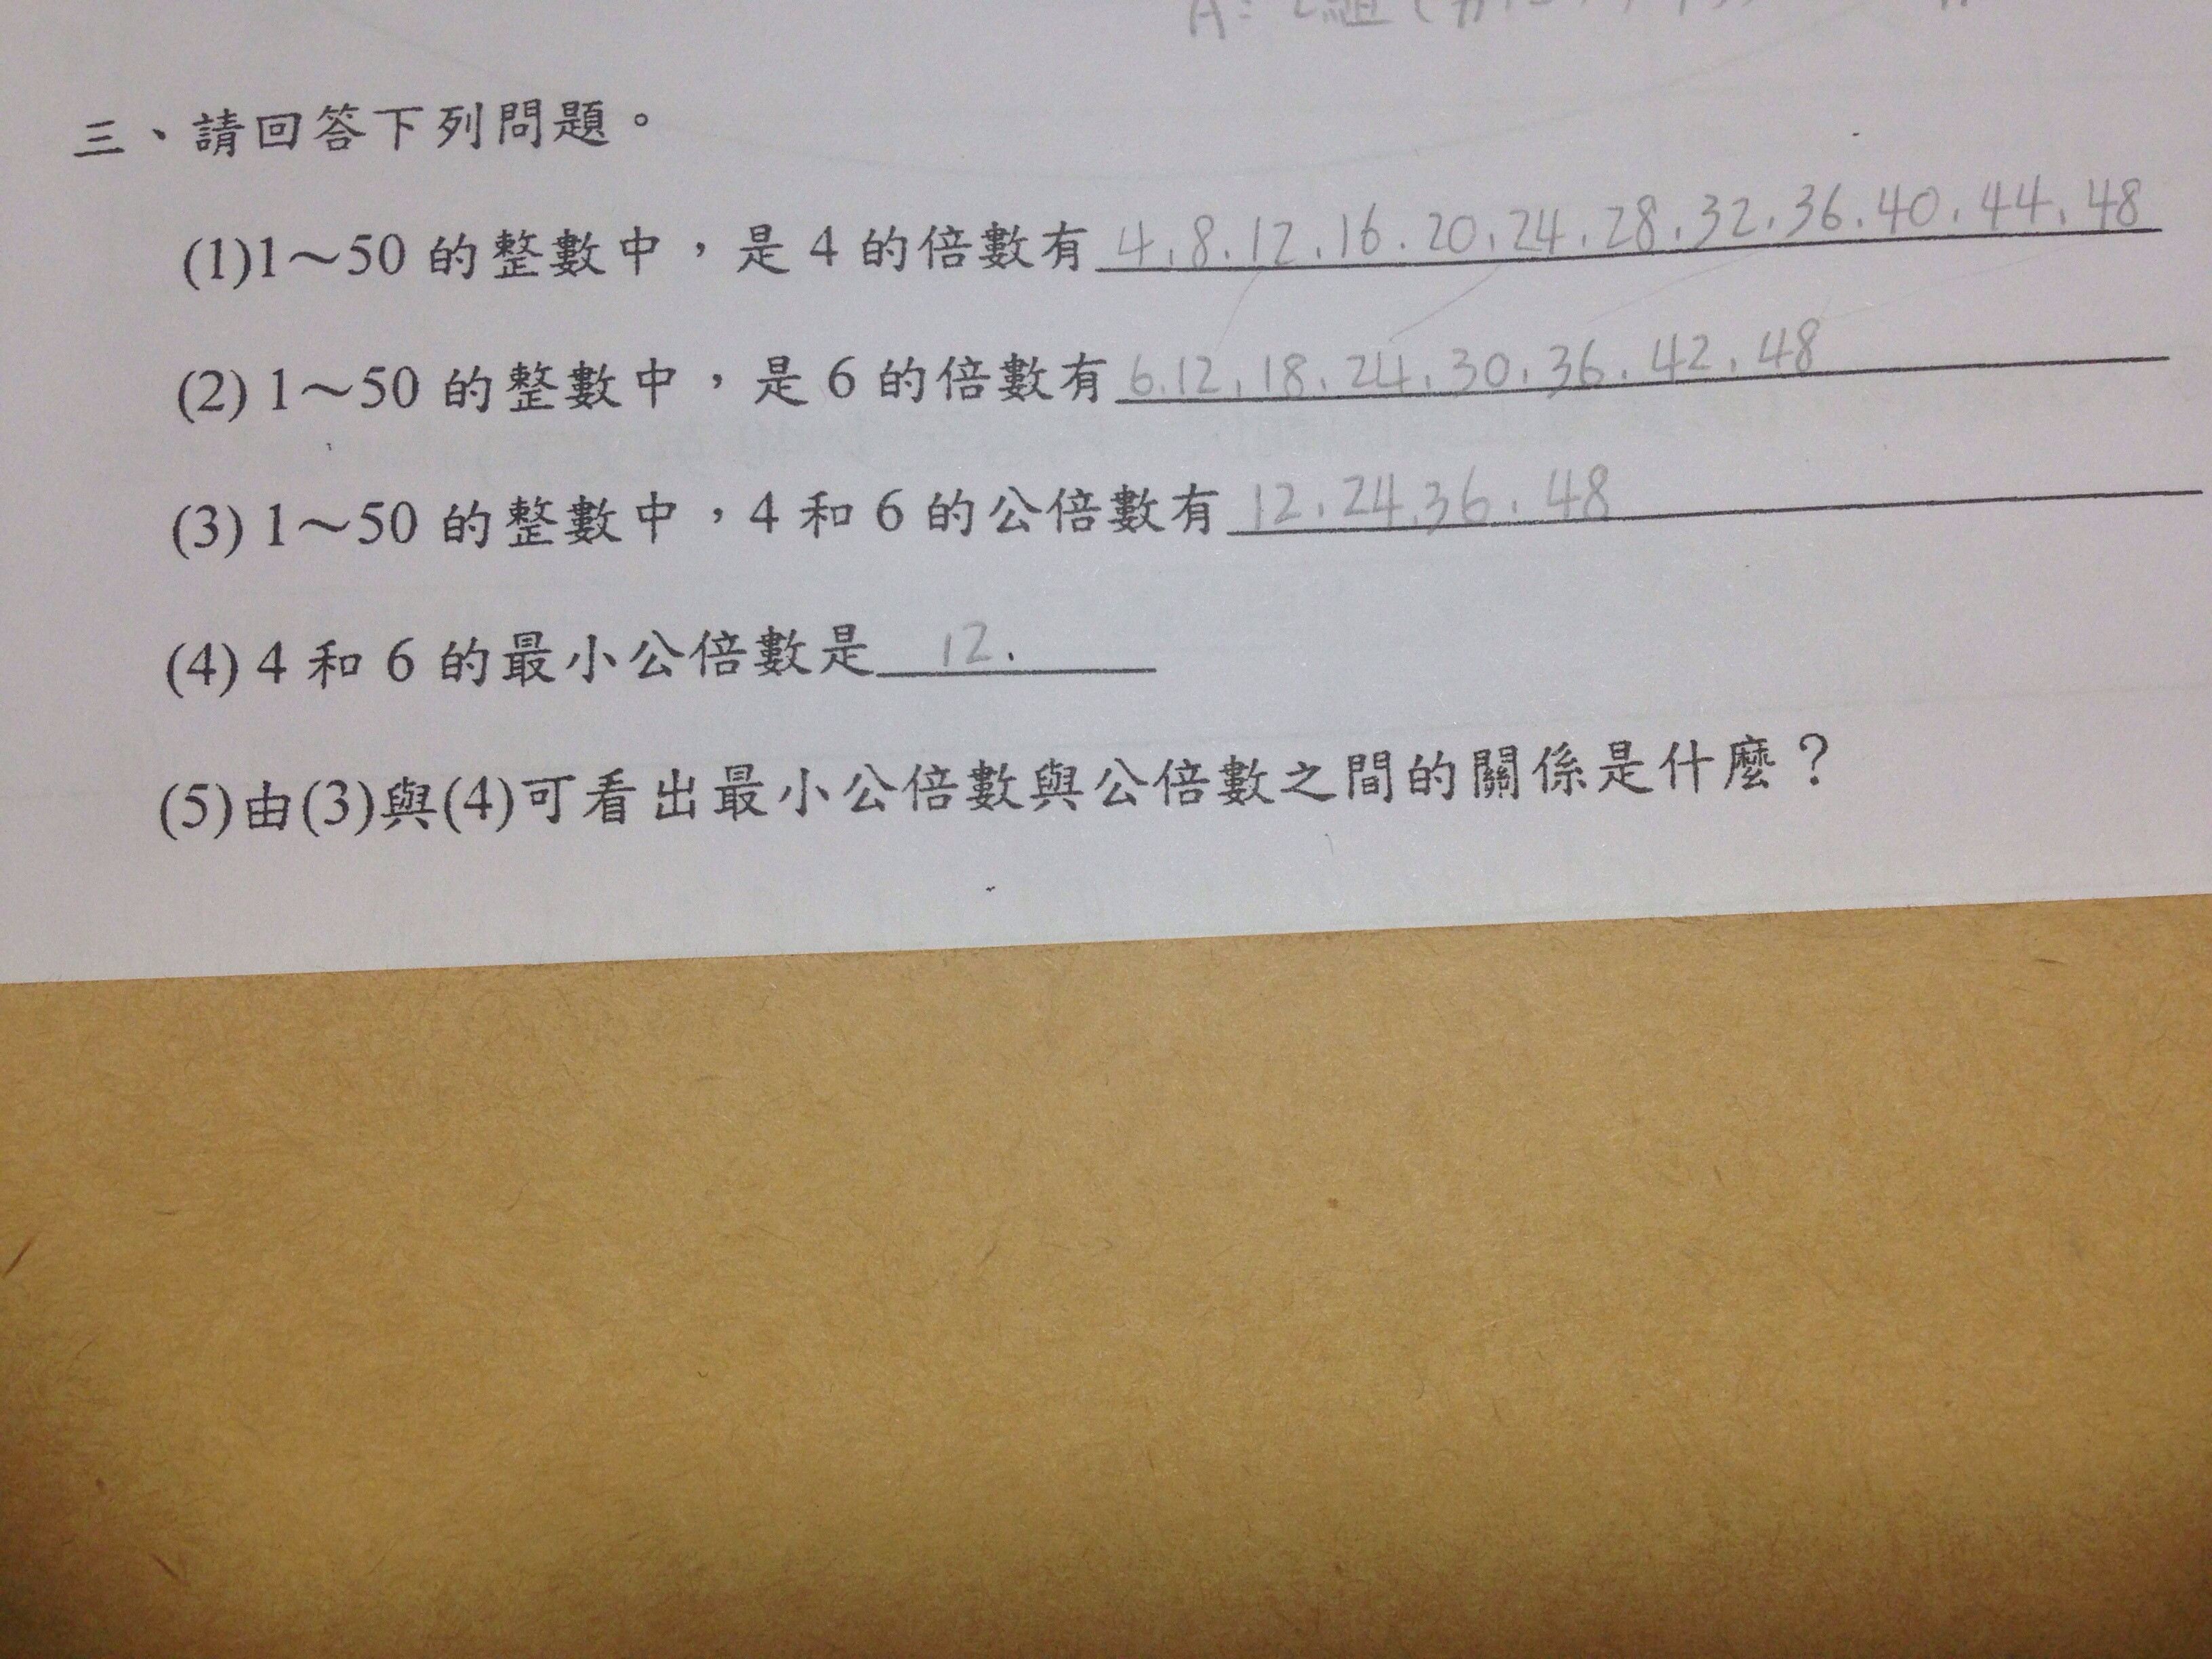 三、請回答下列問題。
(1)1～50 的整數中，是 4 的倍數有 4.8.12.16.20.24.28.32.36.40.44.48
(2) 1～50 的整數中，是 6 的倍數有 6.12.18.24.30.36.42.48
(3) 1～50 的整數中，4 和 6 的公倍數有 12.24.36.48
(4) 4 和 6 的最小公倍數是 12.
(5)由(3)與(4)可看出最小公倍數與公倍數之間的關係是什麼？